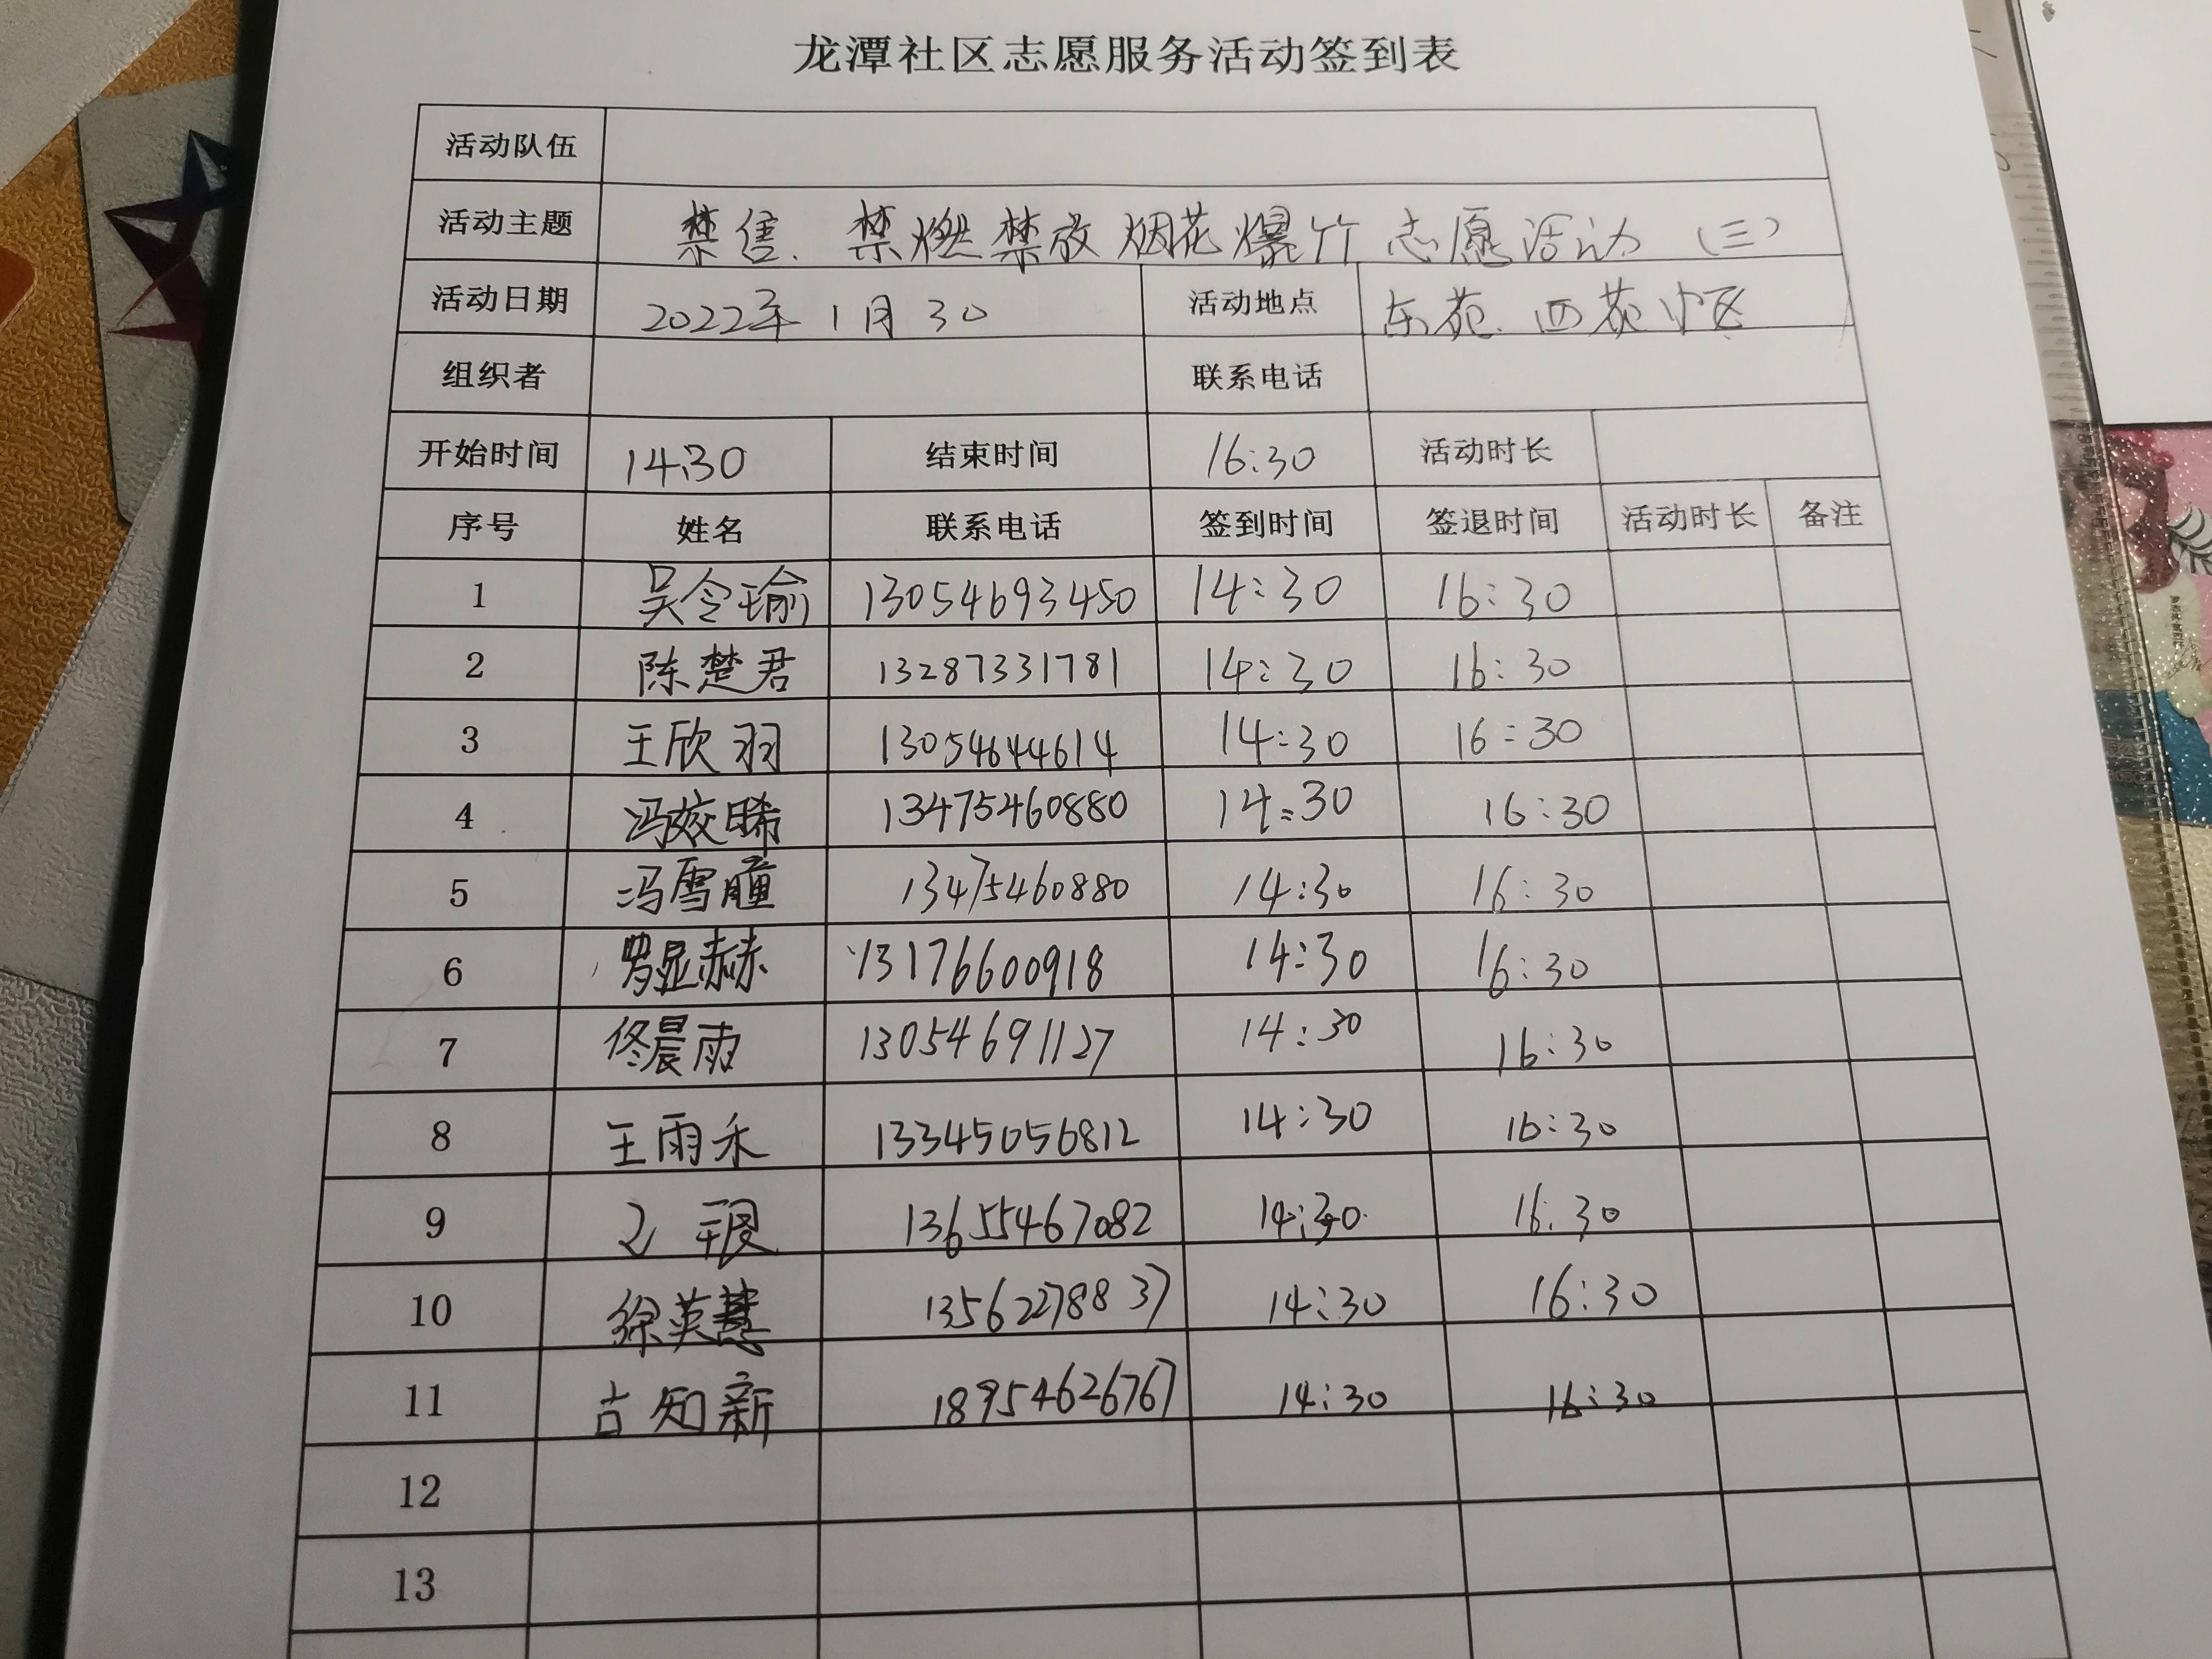 龙潭社区志愿服务活动签到表
活动队伍
活动主题 禁售、禁燃禁放烟花爆竹志愿活动（三）
活动日期 2022年1月30 活动地点 东苑、西苑小区
组织者 联系电话
开始时间 14:30 结束时间 16:30 活动时长
序号 姓名 联系电话 签到时间 签退时间 活动时长 备注
1 吴令瑜 13054693450 14:30 16:30
2 陈楚君 13287331781 14:30 16:30
3 王欣羽 13054644614 14:30 16:30
4 冯姣晞 13475460880 14:30 16:30
5 冯雪瞳 13475460880 14:30 16:30
6 罗显赫 13176600918 14:30 16:30
7 佟晨雨 13054691127 14:30 16:30
8 王雨禾 13345056812 14:30 16:30
9 13655467082 14:30 16:30
10 徐英慧 13562278837 14:30 16:30
11 古知新 18954626767 14:30 16:30
12
13